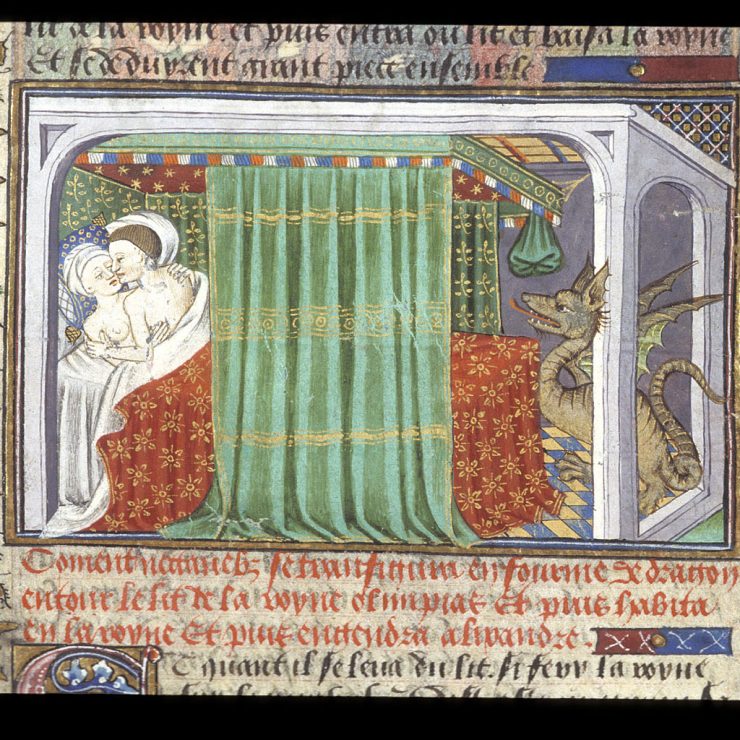 lit de la royne. et puis entra ou lit et baisa la royne
Et se deduyrent grant piece ensemble
Coment nectanebz se transfigura en fourme de dragon
entour le lit de la royne olimpias Et puis habita
en la royne Et puis engendra alixandre.
Et quant il se leva du lit. si fery la royne